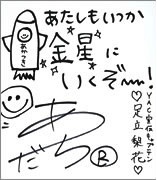 あたしもいつか
金星に
いくぞ〜!
あかつき
YAC宣伝キャプテン
♡足立梨花♡
あだち
B